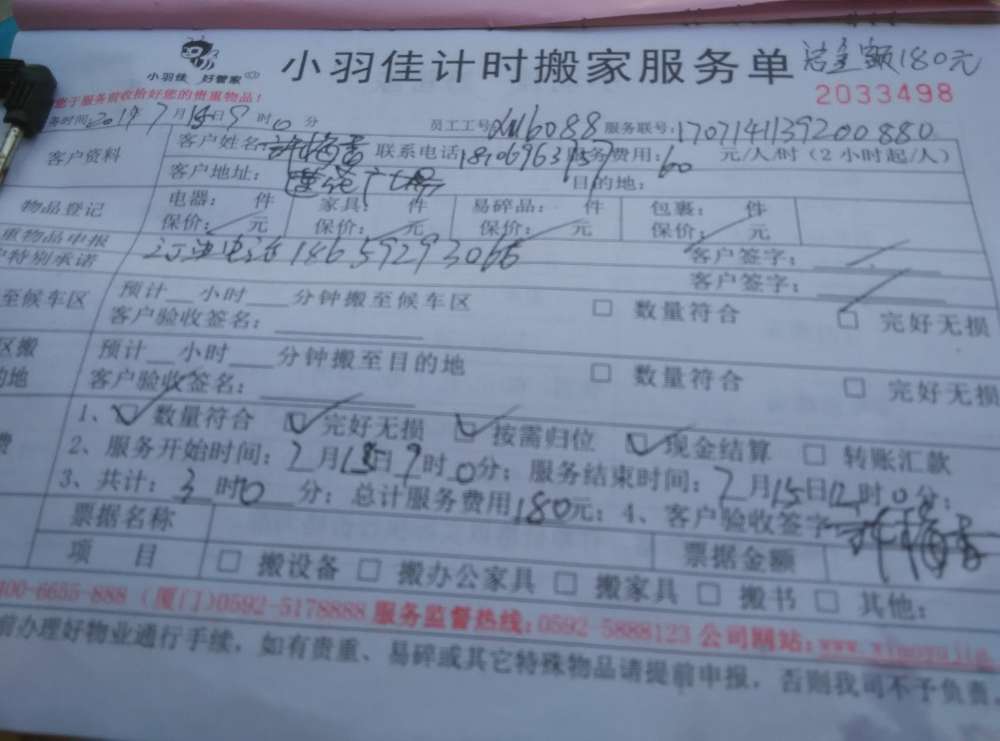 小羽佳 好管家
小羽佳计时搬家服务单 总金额180元
2033498
您于服务前收拾好您的贵重物品!
务时间:2017年7月15日9时0分 员工工号 XM6088 服务联号:1707141139200880
客户资料 客户姓名: 联系电话 服务费用:60元/人/时(2小时起/人)
客户地址:莲花广场 目的地:
物品登记 电器: 件 家具: 件 易碎品: 件 包裹: 件
保价: 元 保价: 元 保价: 元 保价: 元
重物品申报 订边电话18659293066 客户签字:
户特别承诺 客户签字:
至候车区 预计__小时__分钟搬至候车区 □ 数量符合 □ 完好无损
客户验收签名:
区搬 预计__小时__分钟搬至目的地 □ 数量符合 □ 完好无损
的地 客户验收签名:
1、☑数量符合 ☑完好无损 ☑按需归位 ☑现金结算 □ 转账汇款
费 2、服务开始时间:7月15日9时0分;服务结束时间:7月15日12时0分;
3、共计:3时0分;总计服务费用180元;4、客户验收签字
票据名称 票据金额
项 目 □ 搬设备 □ 搬办公家具 □ 搬家具 □ 搬书 □ 其他:
400-6655-888 (厦门)0592-5178888 服务监督热线:0592-5888123 公司网站:www.xiaoyujia.
前办理好物业通行手续,如有贵重、易碎或其它特殊物品请提前申报,否则我司不予负责。